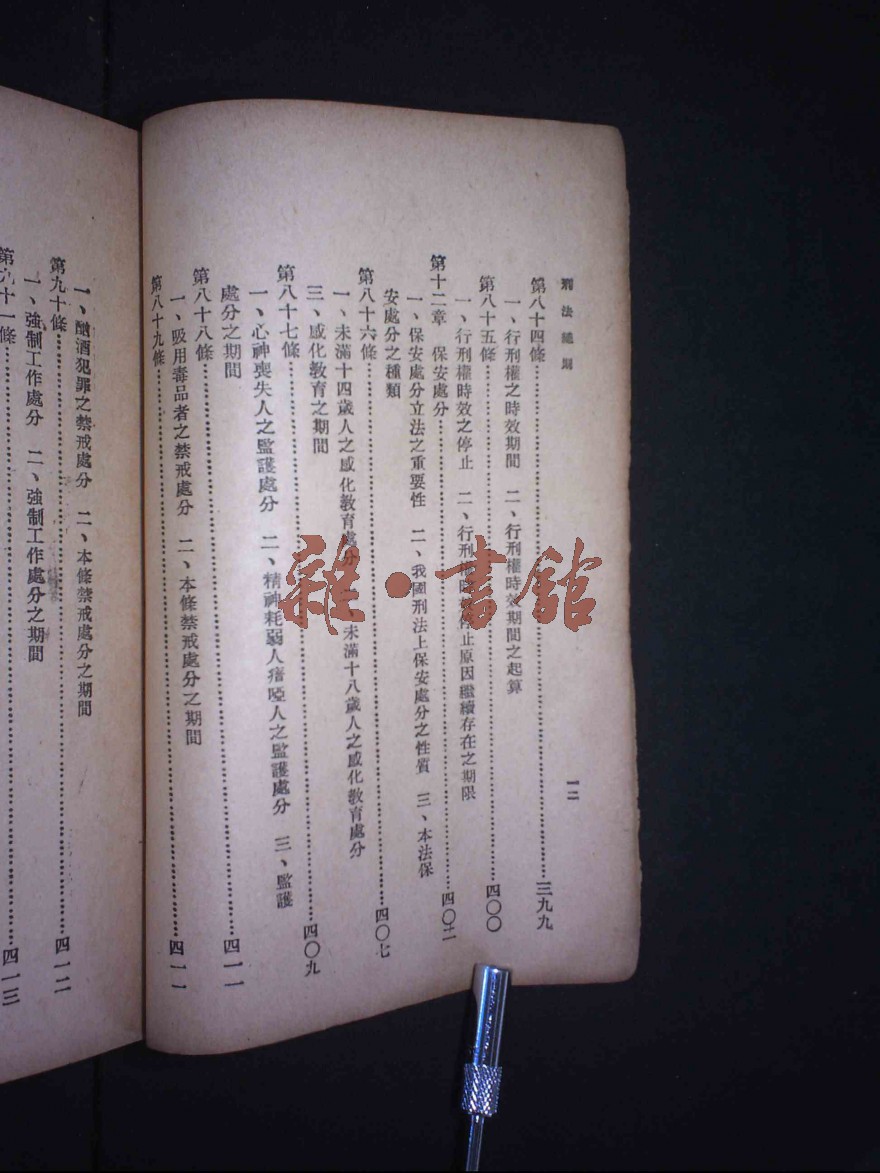 刑法總則
一二
第八十四條……三九九
一、行刑權之時效期間　二、行刑權時效期間之起算
第八十五條……四〇〇
一、行刑權時效之停止　二、行刑權時效停止原因繼續存在之期限
第十二章　保安處分……四〇二
一、保安處分立法之重要性　二、我國刑法上保安處分之性質　三、本法保
安處分之種類
第八十六條……四〇七
一、未滿十四歲人之感化教育處分　二、未滿十八歲人之感化教育處分
三、感化教育之期間
第八十七條……四〇九
一、心神喪失人之監護處分　二、精神耗弱人瘖啞人之監護處分　三、監護
處分之期間
第八十八條……四一一
一、吸用毒品者之禁戒處分　二、本條禁戒處分之期間
第八十九條……四一一
一、酗酒犯罪之禁戒處分　二、本條禁戒處分之期間
第九十條……四一二
一、強制工作處分　二、強制工作處分之期間
第九十一條……四一三
雜·書館